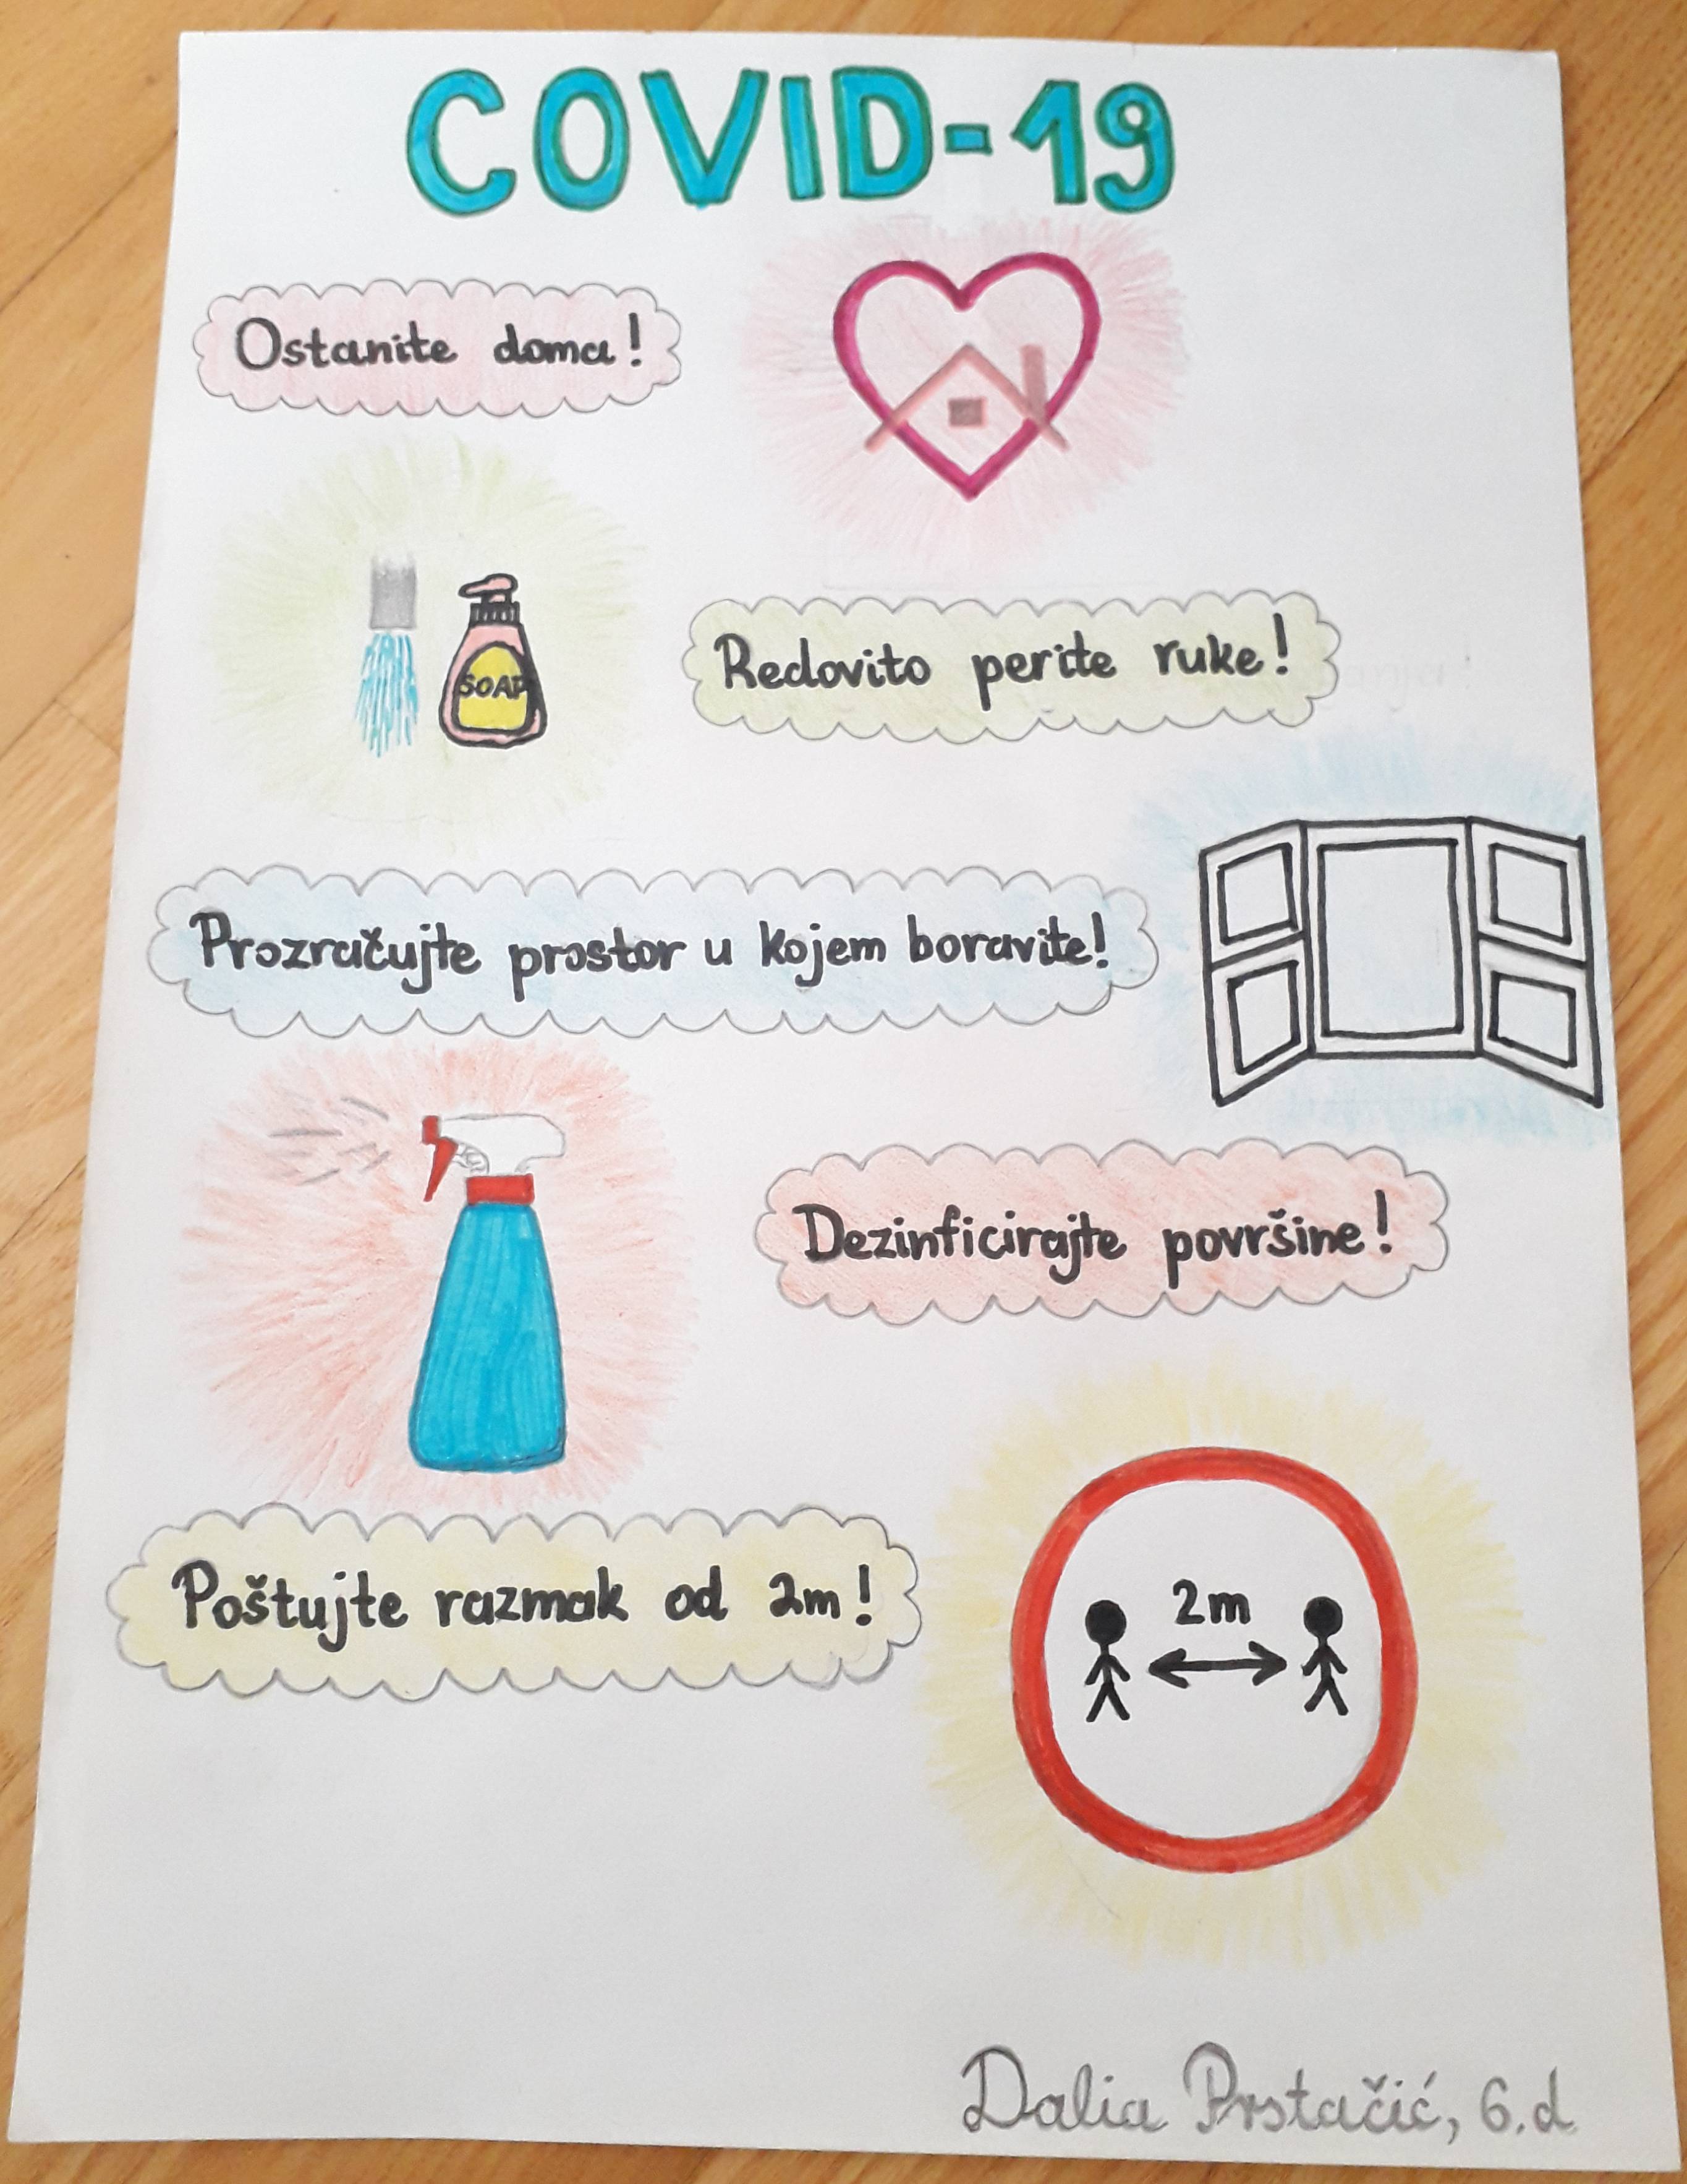 COVID-19
Ostanite doma!
SOAP
Redovito perite ruke!
Prozračujte prostor u kojem boravite!
Dezinficirajte površine!
Poštujte razmak od 2m!
2m
Dalia Prstačić, 6.d